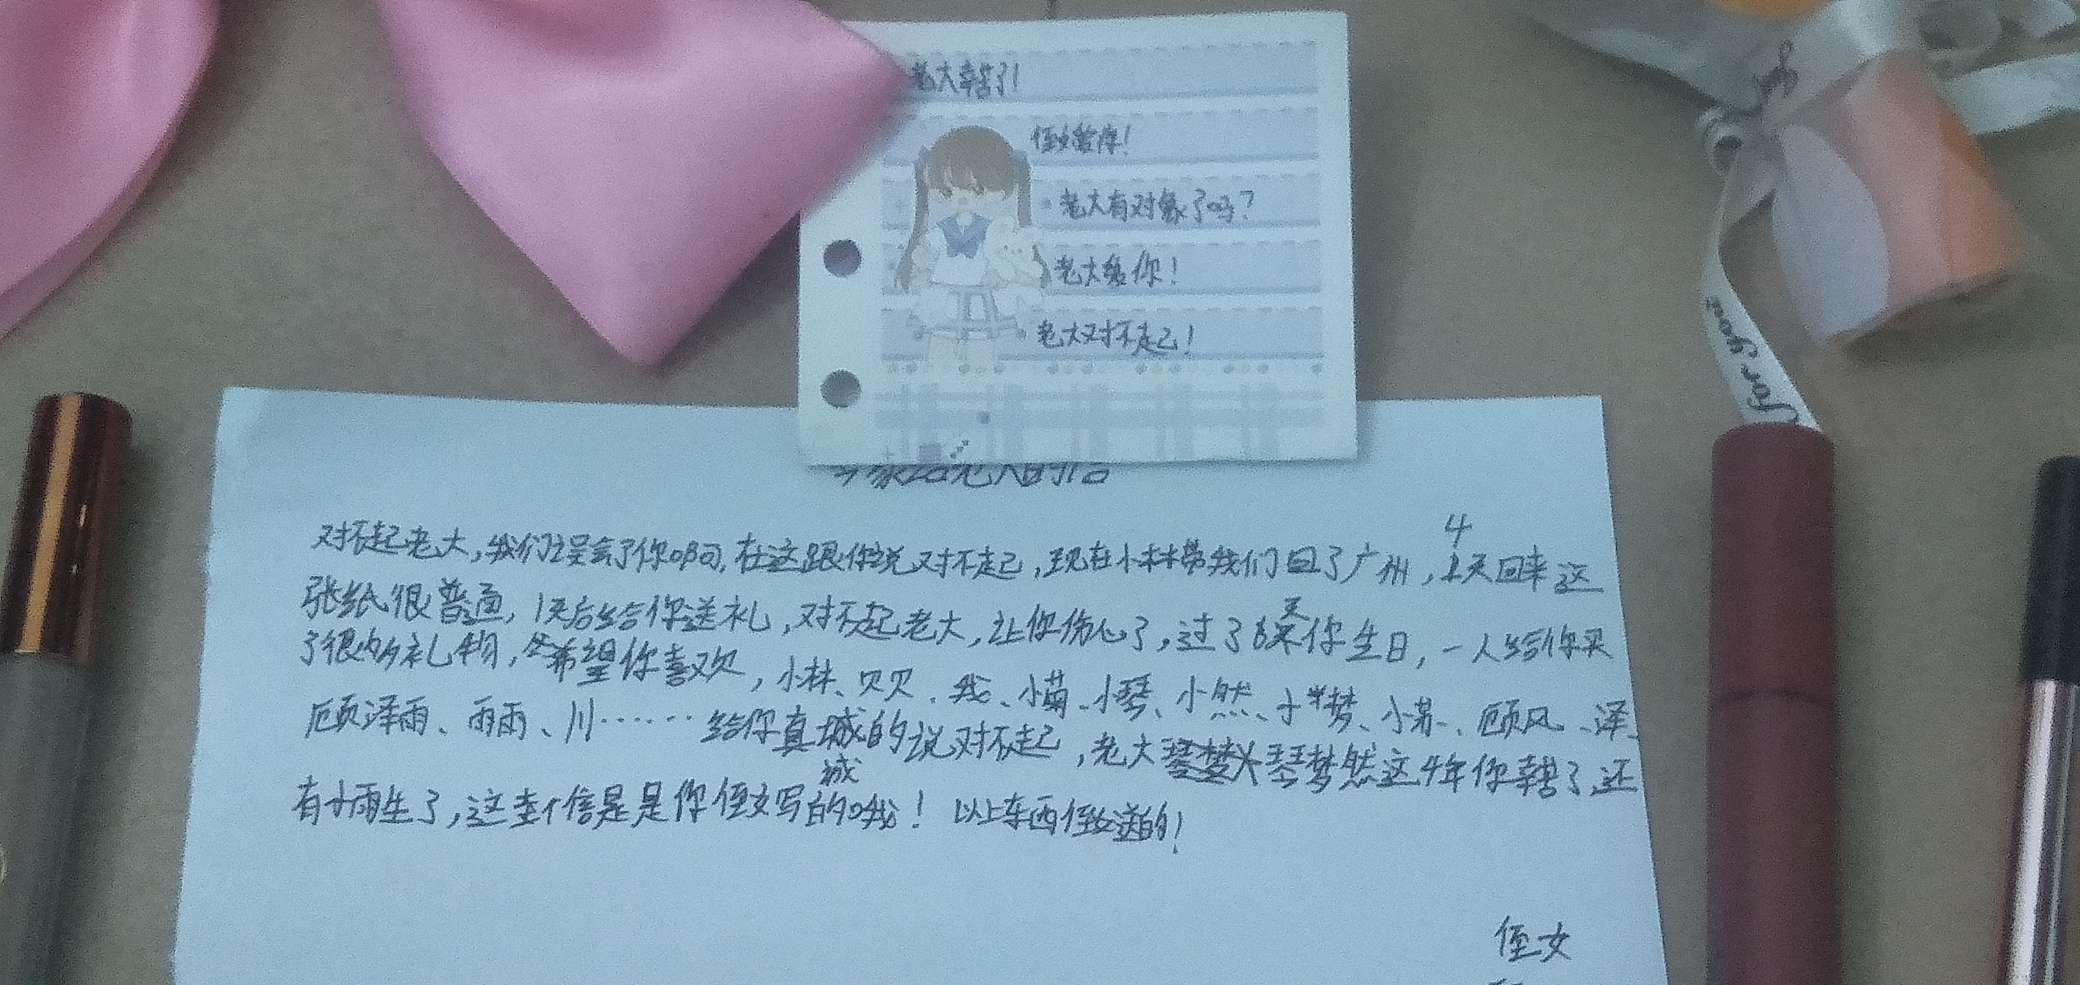 老大辛苦了!
侄女敬库!
老大有对象了吗?
老大给你!
老大对不起!
给老大的信
对不起老大,我们误会了你啊,在这跟你说对不起,现在小林带我们回了广州,4天回来这
张纸很普通,1天后给你送礼,对不起老大,让你伤心了,过了6天你生日,一人给你买
了很多礼物,希望你喜欢,小林、贝贝、我、小菊、小琴、小然、小梦、小苏、顾风、泽、
顾泽雨、雨雨、川……给你真城的说对不起,老大琴梦然这4年你辛苦了,还
有小雨生了,这封信是是你侄女写的哦!以上东西侄女送的!
侄女
for you